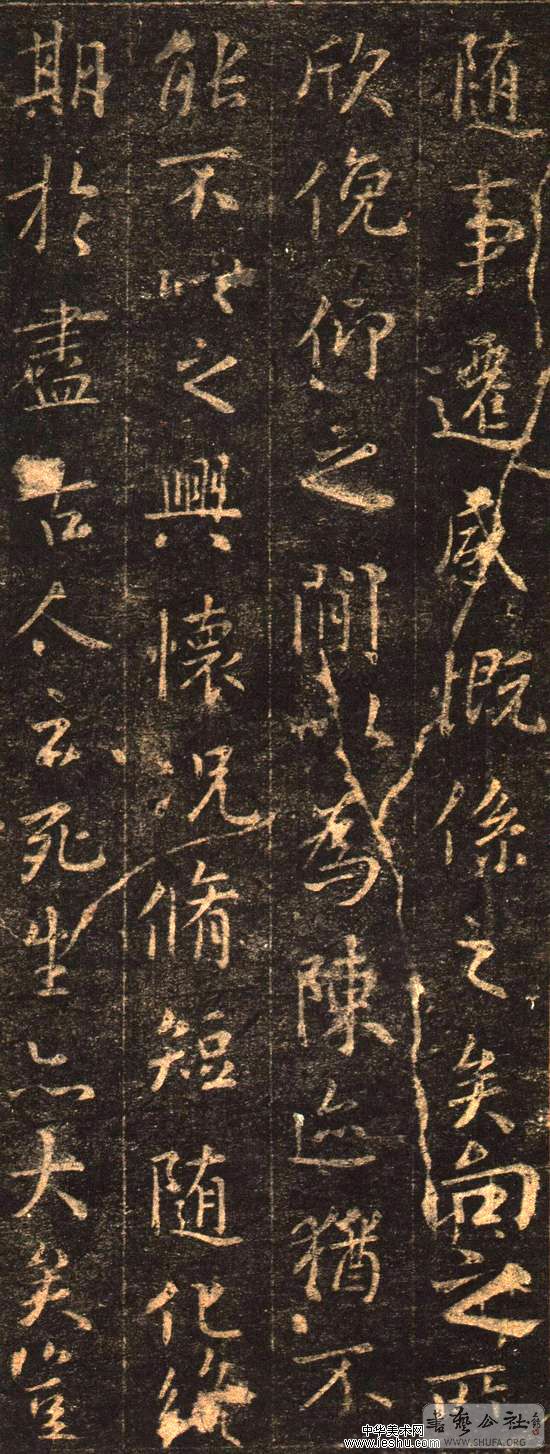 随事遷感慨係之矣向之所
欣俛仰之間以為陳迹猶不
能不以之興懷況脩短随化終
期於盡古人云死生亦大矣豈
中华美术网
www.leshu.com
書藝公社
WWW.SHUFA.ORG